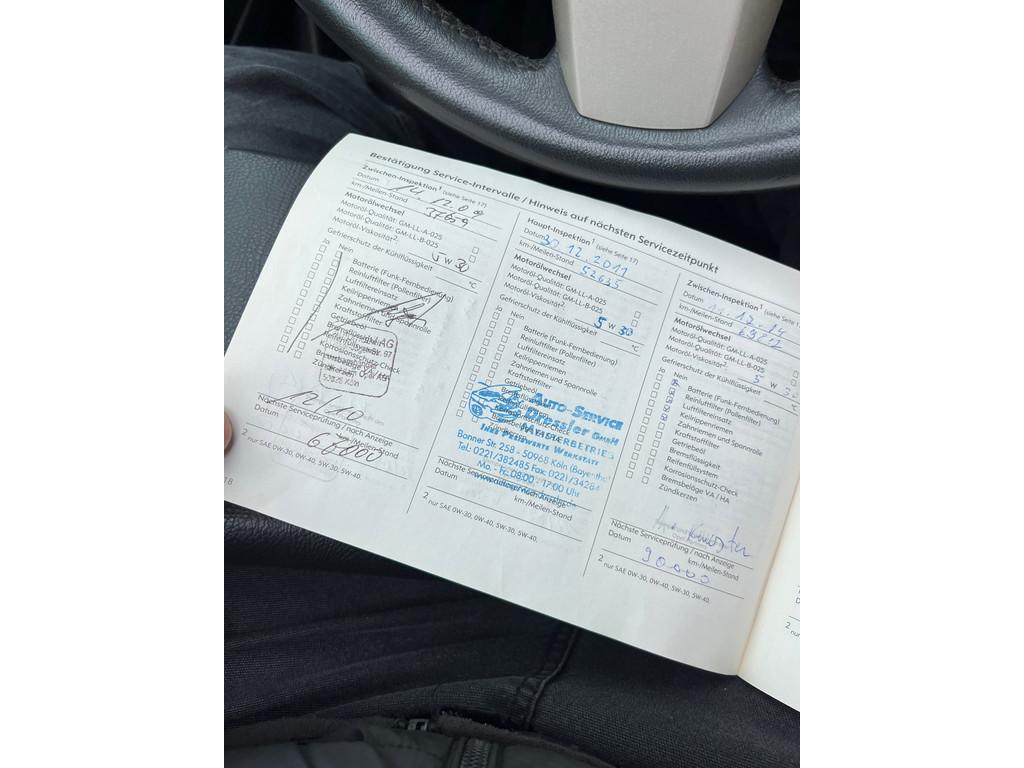 Bestätigung Service-Intervalle / Hinweis auf nächsten Servicezeitpunkt
Zwischen-Inspektion¹ (siehe Seite 17)
Datum 14.12.09
km-/Meilen-Stand 37659
Motorölwechsel
Motoröl-Qualität: GM-LL-A-025
Motoröl-Qualität: GM-LL-B-025
Motoröl-Viskosität²: 5 W 30
Gefrierschutz der Kühlflüssigkeit °C
Ja Nein
Batterie (Funk-Fernbedienung)
Reinluftfilter (Pollenfilter)
Luftfiltereinsatz
Keilrippenriemen
Zahnriemen und Spannrolle
Kraftstofffilter
Getriebeöl
Bremsflüssigkeit
Reifenfüllsystem
Korrosionsschutz-Check
Bremsbeläge VA / HA
Zündkerzen
AG
Köln
Nächste Serviceprüfung / nach Anzeige
Datum 12/10
km-/Meilen-Stand
² nur SAE 0W-30, 0W-40, 5W-30, 5W-40.
18
Haupt-Inspektion¹ (siehe Seite 17)
Datum 30.12.2011
km-/Meilen-Stand 52635
Motorölwechsel
Motoröl-Qualität: GM-LL-A-025
Motoröl-Qualität: GM-LL-B-025
Motoröl-Viskosität²: 5 W 30
Gefrierschutz der Kühlflüssigkeit °C
Ja Nein
Batterie (Funk-Fernbedienung)
Reinluftfilter (Pollenfilter)
Luftfiltereinsatz
Keilrippenriemen
Zahnriemen und Spannrolle
Kraftstofffilter
Getriebeöl
Zündkerzen
Auto-Service
Dressler GmbH
Meisterbetrieb
Ihre Preiswerte Werkstatt
Bonner Str. 258 - 50968 Köln (Bayenthal)
Tel.: 0221/382485 Fax: 0221/34284
Mo. - Fr. 08:00 - 17:00 Uhr
Nächste Serviceprüfung / nach Anzeige
Datum
km-/Meilen-Stand
² nur SAE 0W-30, 0W-40, 5W-30, 5W-40.
Zwischen-Inspektion¹ (siehe Seite 17
Datum
km-/Meilen-Stand
Motorölwechsel
Motoröl-Qualität: GM-LL-A-025
Motoröl-Qualität: GM-LL-B-025
Motoröl-Viskosität²: 5 W
Gefrierschutz der Kühlflüssigkeit
Ja Nein
Batterie (Funk-Fernbedienung)
Reinluftfilter (Pollenfilter)
Luftfiltereinsatz
Keilrippenriemen
Zahnriemen und Spannrolle
Kraftstofffilter
Getriebeöl
Bremsflüssigkeit
Reifenfüllsystem
Korrosionsschutz-Check
Bremsbeläge VA / HA
Zündkerzen
Nächste Serviceprüfung / nach Anzeige
Datum
km-/Meilen-Stand
90000
² nur SAE 0W-30, 0W-40, 5W-30, 5W-40.
² nur